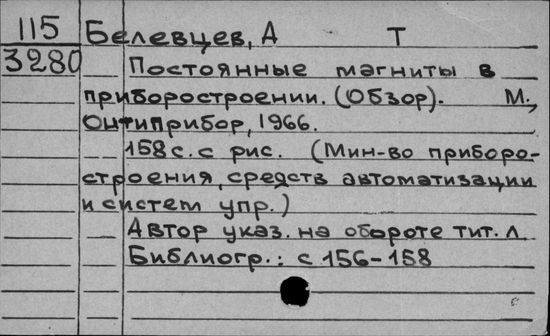 115 Белевцев, А Т
3280 Постоянные магниты в
приборостроении. (Обзор). М.,
Онтиприбор, 1966.
158 с. с рис. (Мин-во приборо-
строения, средств автоматизации
и систем упр.)
Автор указ. на обороте тит. л.
Библиогр.: с 156-158